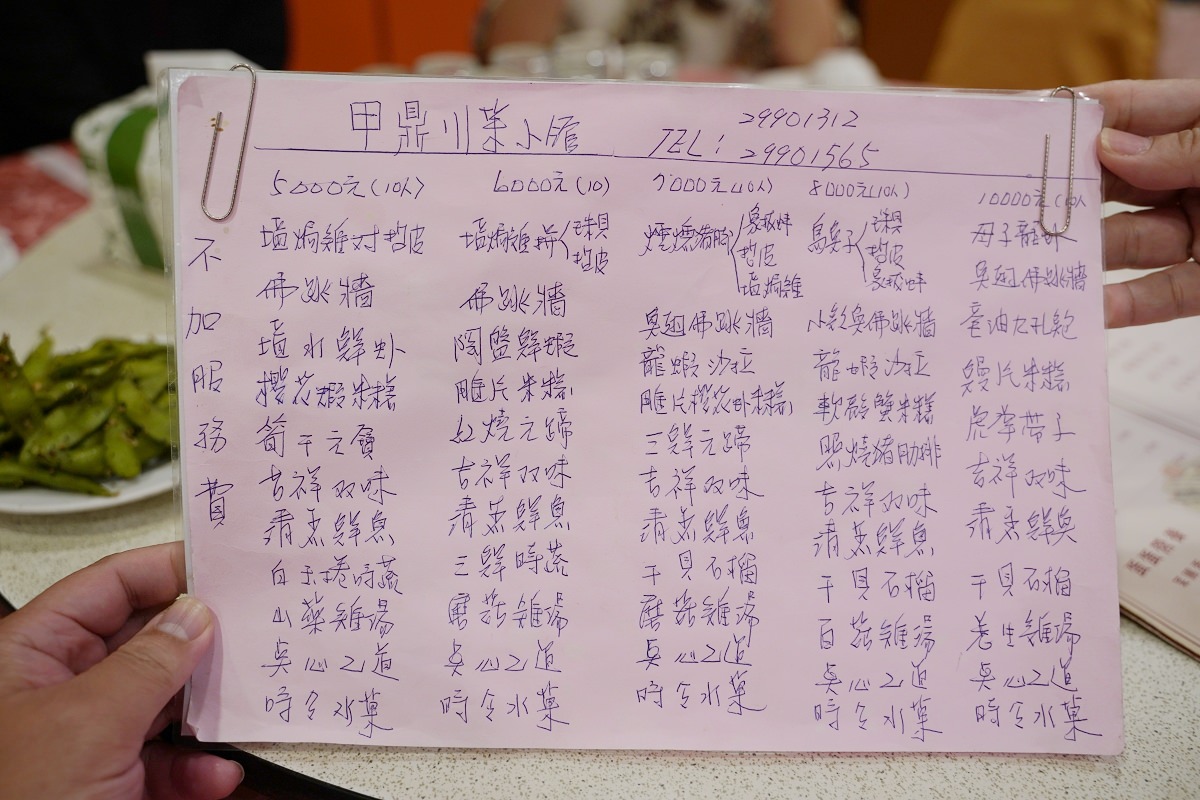 甲鼎川菜小館
TEL: 29901312
29901565
不加服務費
5000元(10人)
塩焗雞対拼皮
佛跳牆
塩水鮮虾
櫻花蝦米糕
筍干元寶
吉祥双味
清蒸鮮魚
白玉卷時蔬
山藥雞湯
點心2道
時令水菓
6000元(10)
塩焗雞拼 珠貝
佛跳牆
陶盤鮮蝦
雕片米糕
紅燒元蹄
吉祥双味
清蒸鮮魚
三鮮時蔬
蘑菇雞湯
點心2道
時令水菓
7000元(10人)
象拔蚌
塩焗雞
魚翅佛跳牆
龍蝦沙拉
雕片櫻花虾米糕
三鮮元蹄
吉祥双味
清蒸鮮魚
干貝石榴
蘑菇雞湯
點心2道
時令水菓
8000元(10人)
烏魚子 珠貝
象拔蚌
佛跳牆
龍蝦沙拉
軟殼蟹米糕
照燒豬肋排
吉祥双味
清蒸鮮魚
干貝石榴
百菇雞湯
點心2道
時令水菓
10000元(10人
母子龍虾
魚翅佛跳牆
蠔油九孔鮑
鰻片米糕
虎掌帶子
吉祥双味
清蒸鮮魚
干貝石榴
養生雞湯
點心2道
時令水菓